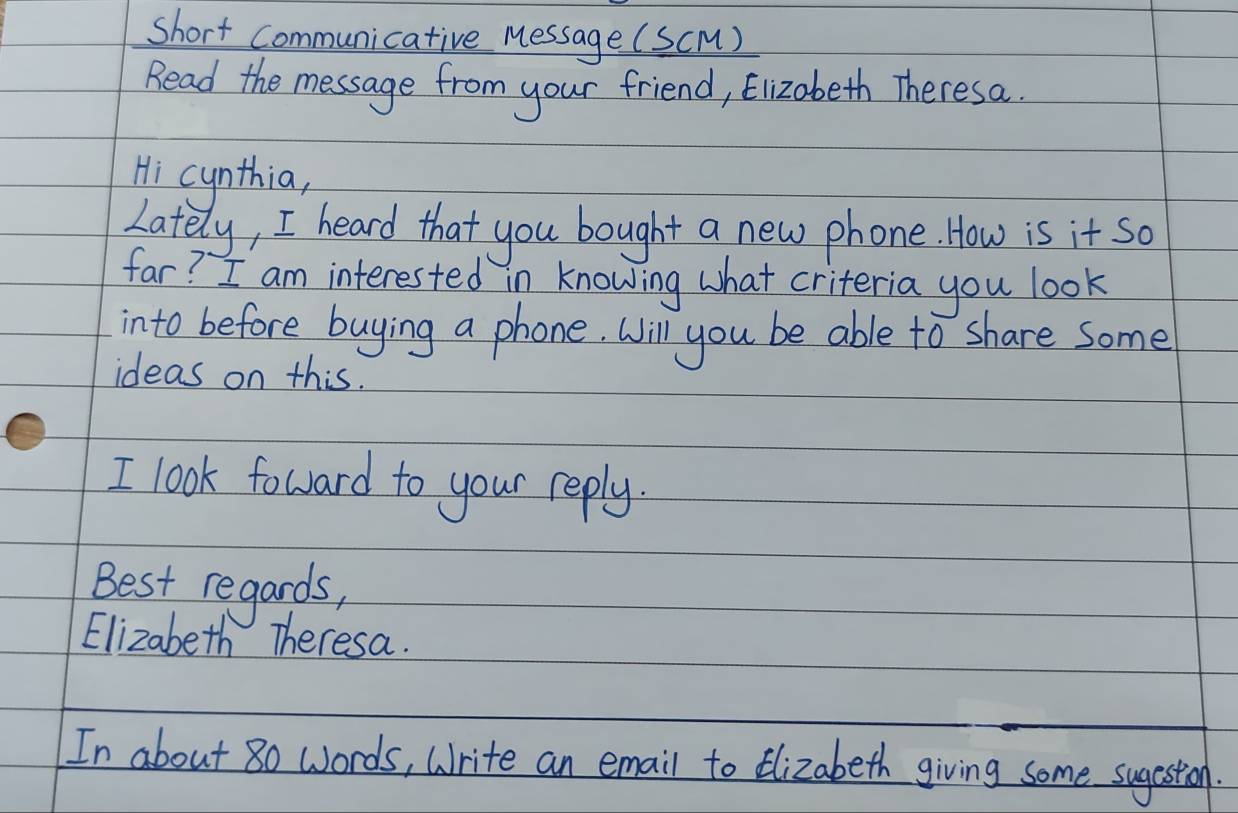 Short Communicative Message (SCM)
Read the message from your friend, Elizabeth Theresa.
Hi Cynthia,
Lately, I heard that you bought a new phone. How is it so
far? I am interested in knowing what criteria you look
into before buying a phone. Will you be able to share some
ideas on this.
I look foward to your reply.
Best regards,
Elizabeth Theresa.
In about 80 words, Write an email to Elizabeth giving some sugestion.